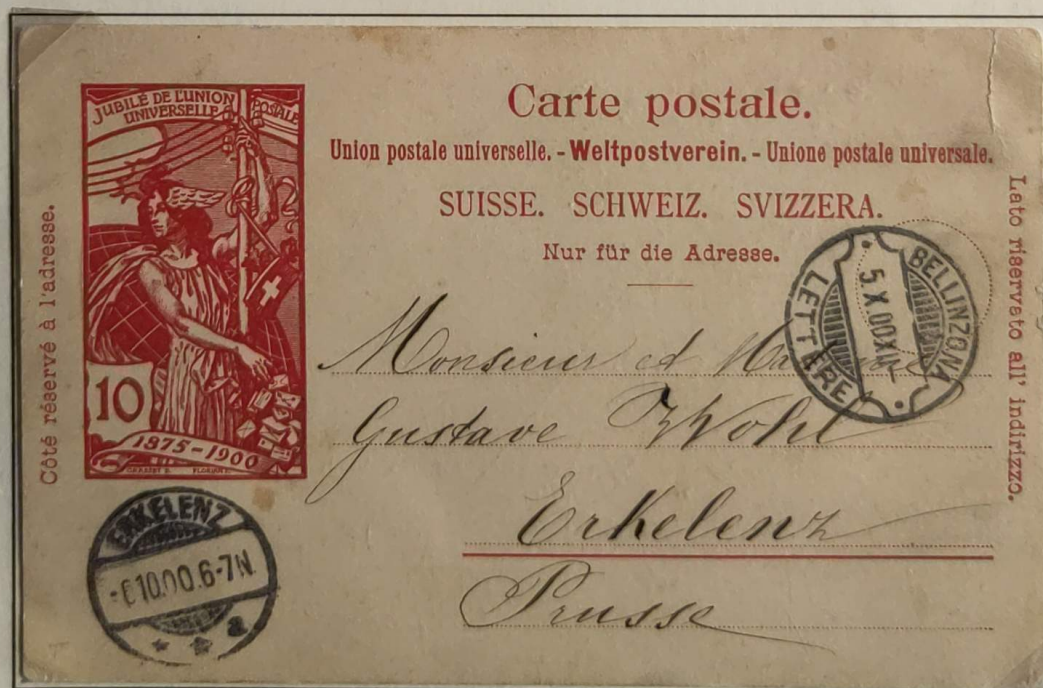 JUBILÉ DE L'UNION
UNIVERSELLE POSTALE
10
1875-1900
Carte postale.
Union postale universelle. - Weltpostverein. - Unione postale universale.
SUISSE. SCHWEIZ. SVIZZERA.
Nur für die Adresse.
Côté réservé à l'adresse.
Lato riservato all' indirizzo.
BELLINZONA
5 X 00 XII
LETTERE
Monsieur et
Gustave Wohl
Erkelenz
Prusse
ERKELENZ
10.00.6-7N.
a